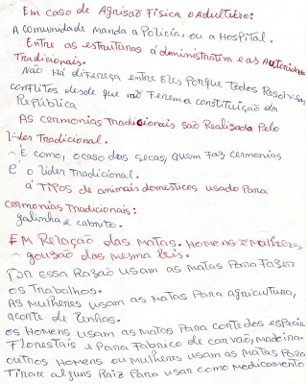 Em caso de Agrisão Física o Adulteiro:
A comunidade manda a Polícia, ou a Hospital.
Entre as estruturas administrativa e as Autoridades
Tradicionais.
Não Há difereça entre Eles porque todos Resolvem
conflitos desde que não Ferem a constituição da
República
As cermonias Tradicionais são Realizada pelo
líder Tradicional.
- É como, o caso das secas, quem Faz cermonias
é o líder Tradicional.
a Tipos de animais domesticos usado para
cermonias Tradicionais:
galinha e cabrito.
EM Relação das Matas. Homens e Mulheres
- gousão das mesma leis.
por essa Razão usam as Matas para Fazer
os Trabalhos.
As mulheres usam as Matas para agricultura,
acorte de lenhas.
os Homens usam as Matas para corte dos especie
Florestais e para Fabrico de carvão, Madeira.
outros Homens ou Mulheres usam as Matas para
Tirar alguns Raiz para usar como medicamento